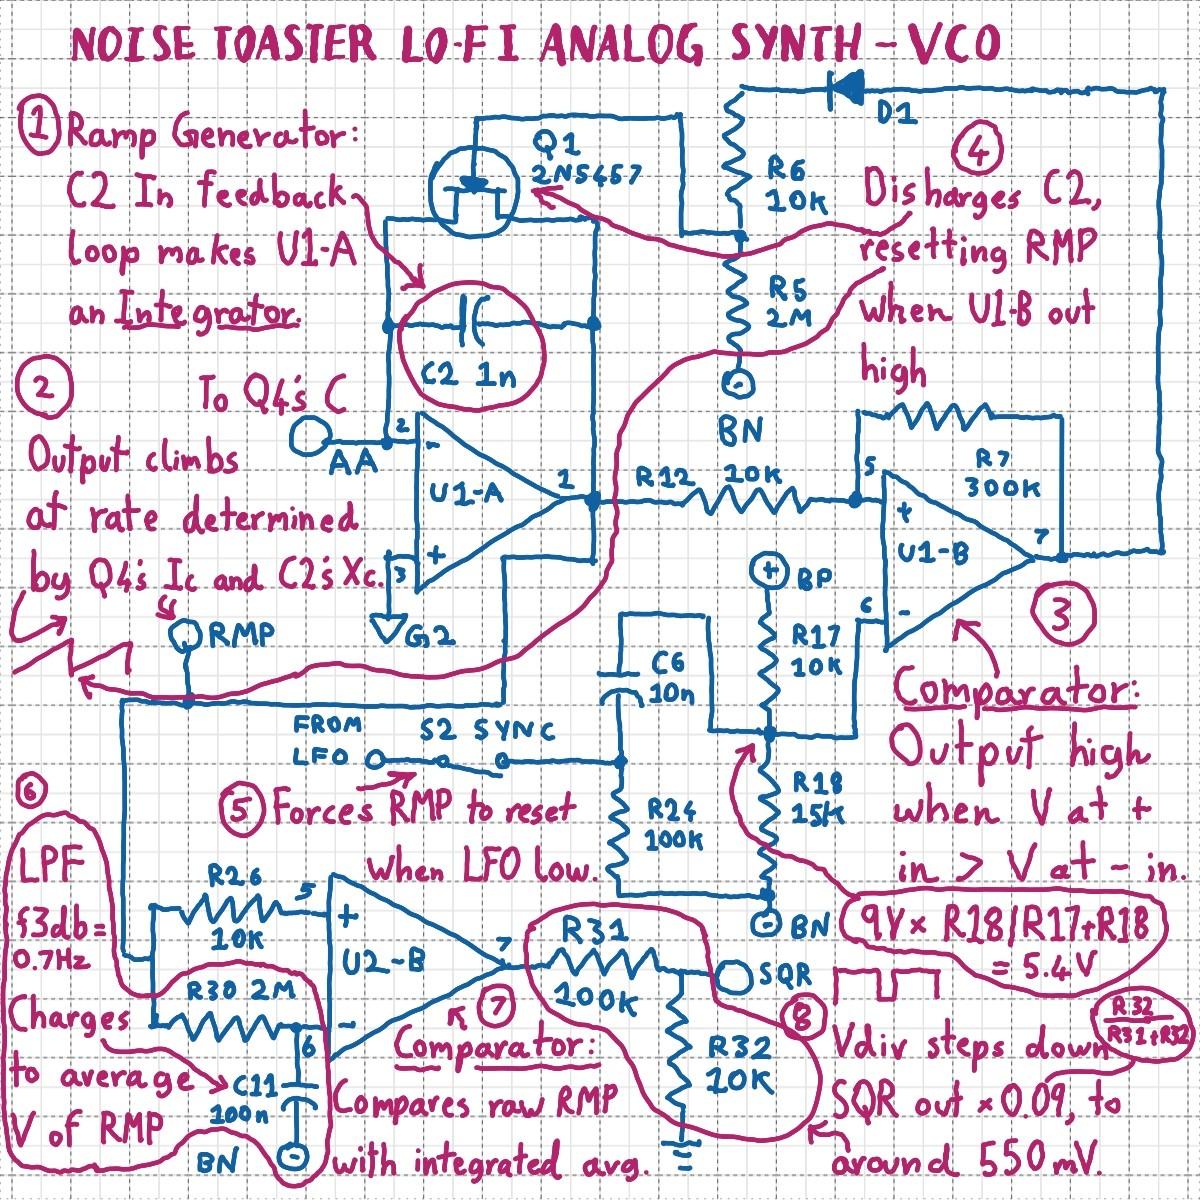 NOISE TOASTER LO-FI ANALOG SYNTH - VCO
1 Ramp Generator:
C2 In feedback
loop makes U1-A
an Integrator.
Q1
2N5457
D1
R6
10K
4
Disharges C2,
resetting RMP
when U1-B out
high
R5
2M
-
BN
C2 1n
2
To Q4's C
Output climbs
at rate determined
by Q4's Ic and C2's Xc.
AA
2
-
U1-A
1
+
3
G2
RMP
R12 10K
R7
300K
5
+
U1-B
7
6
-
+ BP
R17
10K
C6
10n
3
Comparator:
Output high
when V at +
in > V at - in.
FROM
LFO
S2 SYNC
5 Forces RMP to reset
when LFO low.
R24
100K
R18
15K
- BN
9V x R18/R17+R18
= 5.4V
6
LPF
f3db=
0.7Hz
Charges
to average
V of RMP
R26
10K
5
+
U2-B
7
R30 2M
-
6
C11
100n
BN -
7
Comparator:
Compares raw RMP
with integrated avg.
R31
100K
SQR
R32
10K
8
Vdiv steps down
R32
R31+R32
SQR out x 0.09, to
around 550mV.